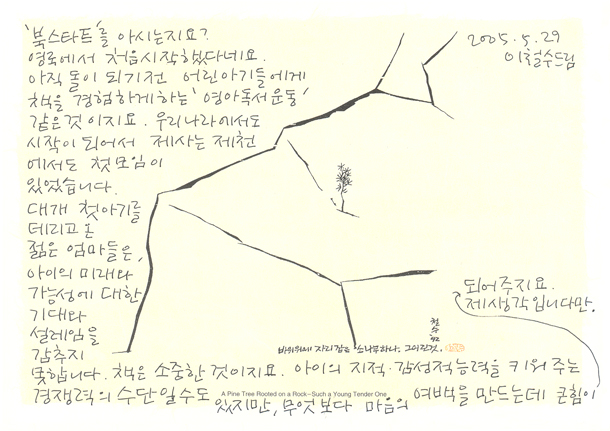 '북스타트'를 아시는지요?
영국에서 처음시작했다네요.
아직 돌이 되기전 어린아기들에게
책을 경험하게하는 '영아독서운동'
같은것 이지요. 우리나라에서도
시작이 되어서 제사는 제천
에서도 첫모임이
있었습니다.
대개 첫아기를
데리고 온
젊은 엄마들은,
아이의 미래와
가능성에 대한
기대와
설레임을
감추지
못합니다. 책은 소중한 것이지요. 아이의 지적·감성적능력을 키워 주는
경쟁력의 수단일수도 있지만, 무엇보다 마음의 여백을 만드는데 큰힘이
되어주지요.
제생각입니다만.
2005.5.29
이철수드림
철수 '92
바위위에 자리잡은 소나무하나. 그어린것.
A Pine Tree Rooted on a Rock–Such a Young Tender One